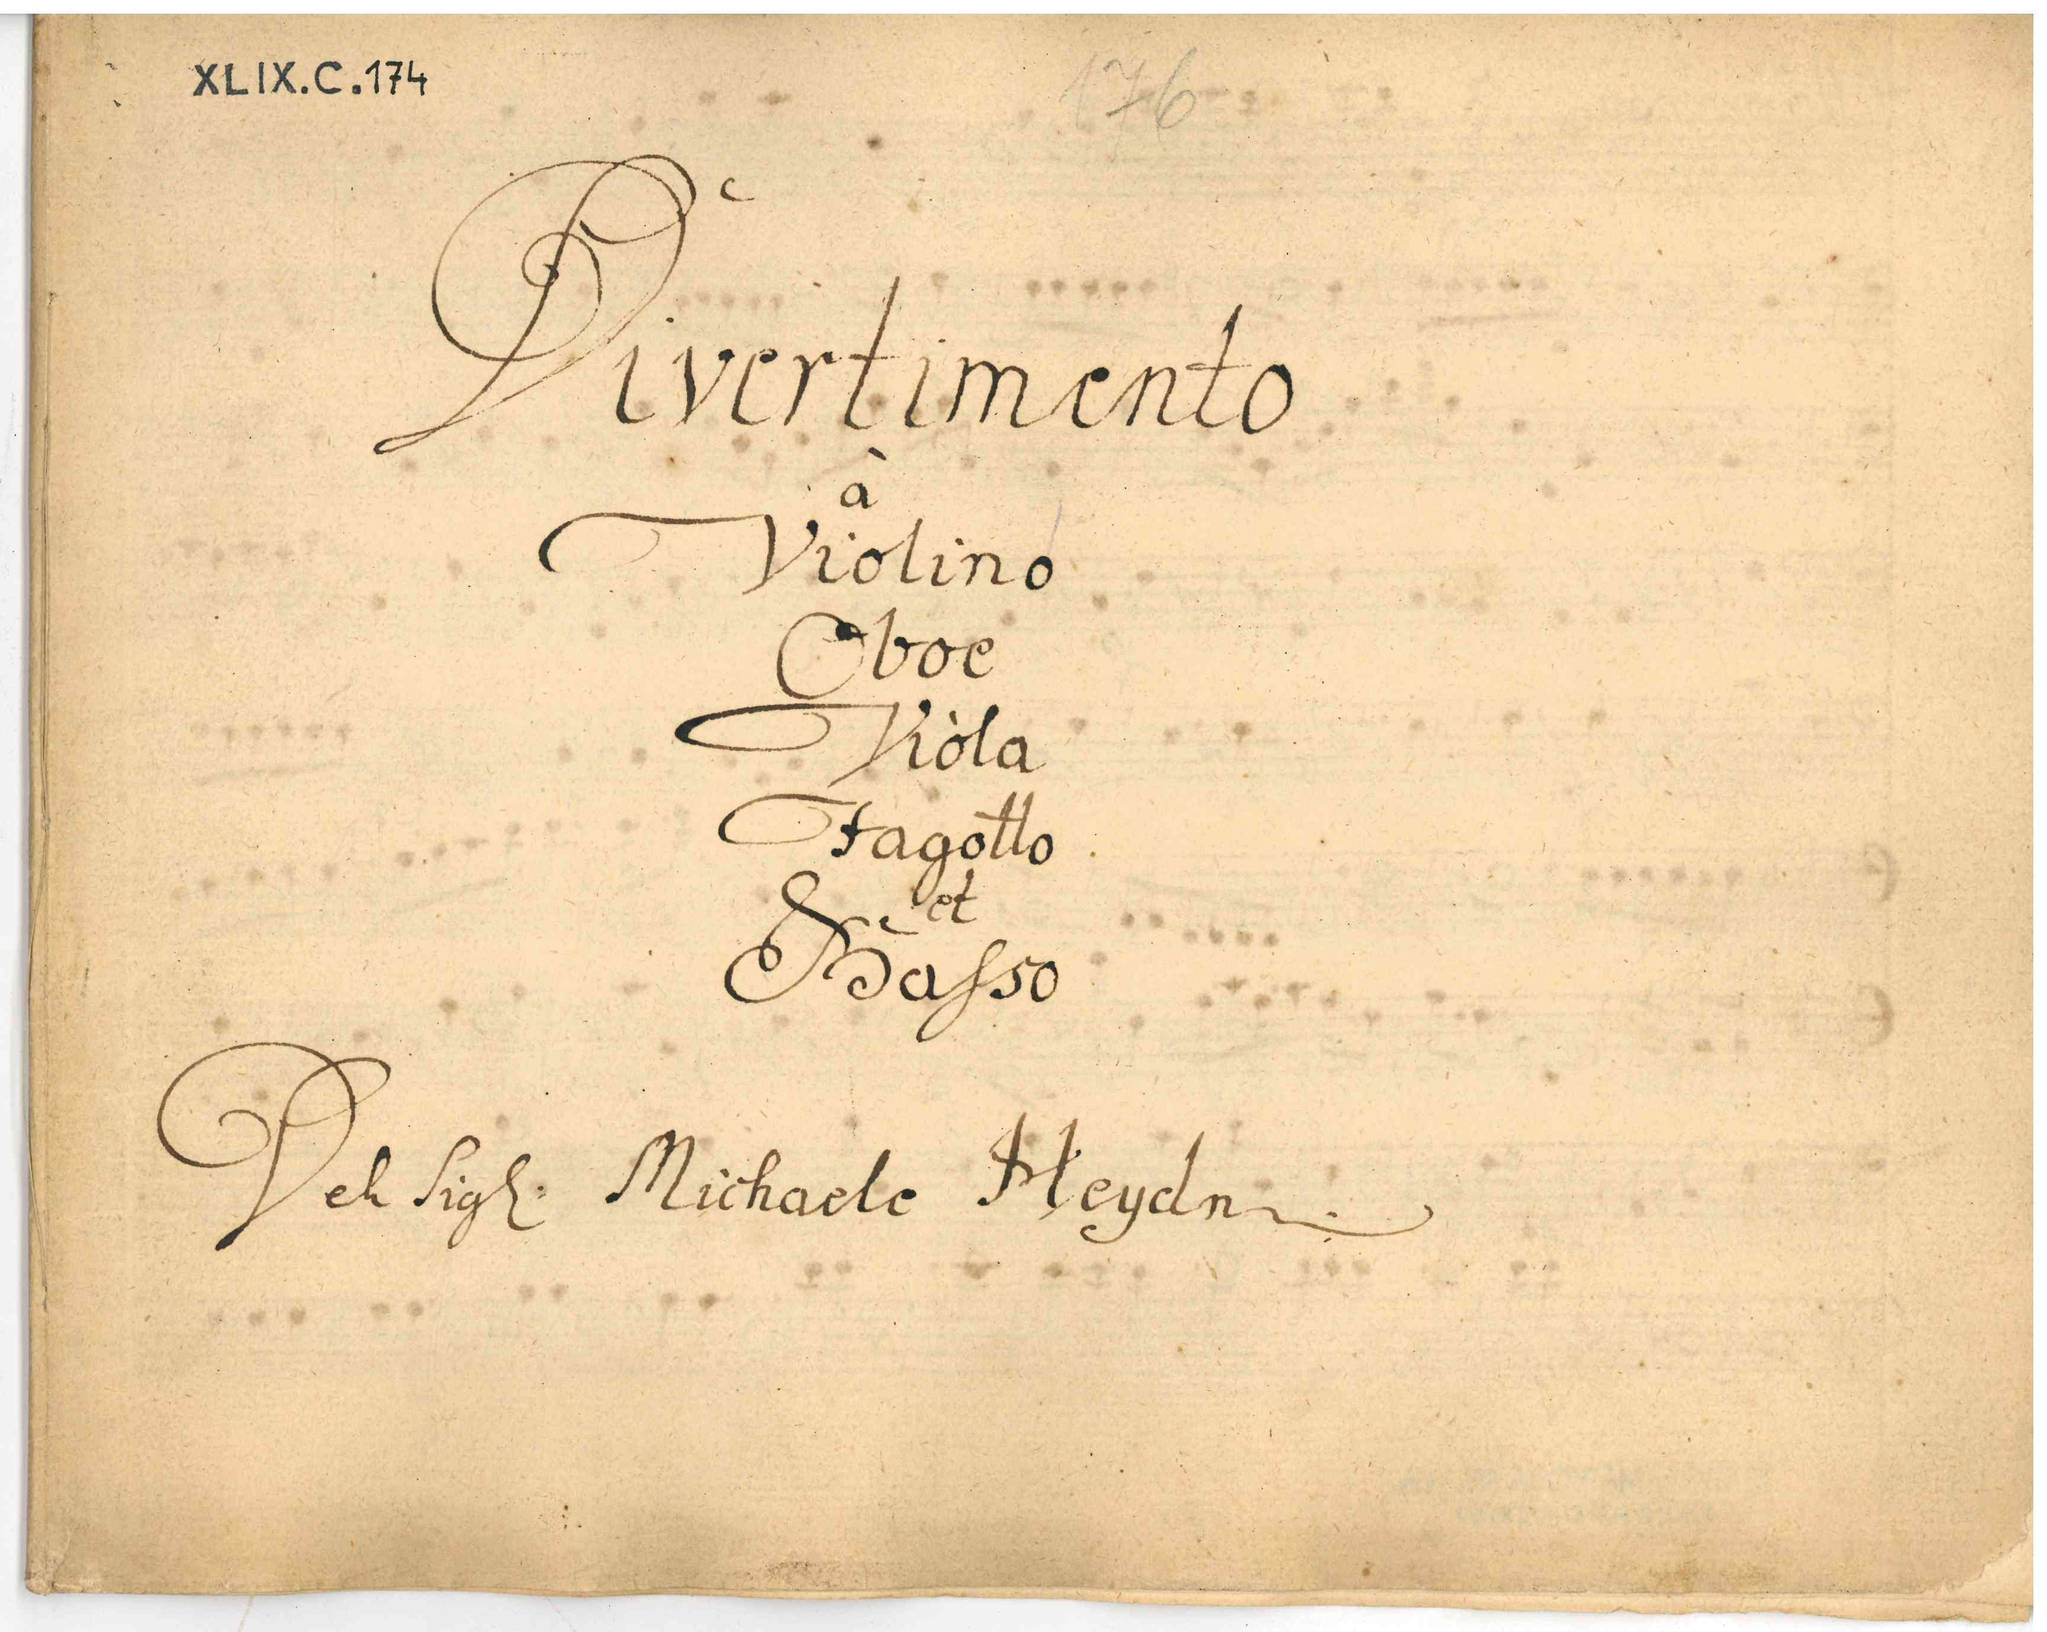 XLIX.C.174
176
Divertimento
à
Violino
Oboe
Viola
Fagotto
et
Basso
Del Sigr: Michaele Heydn